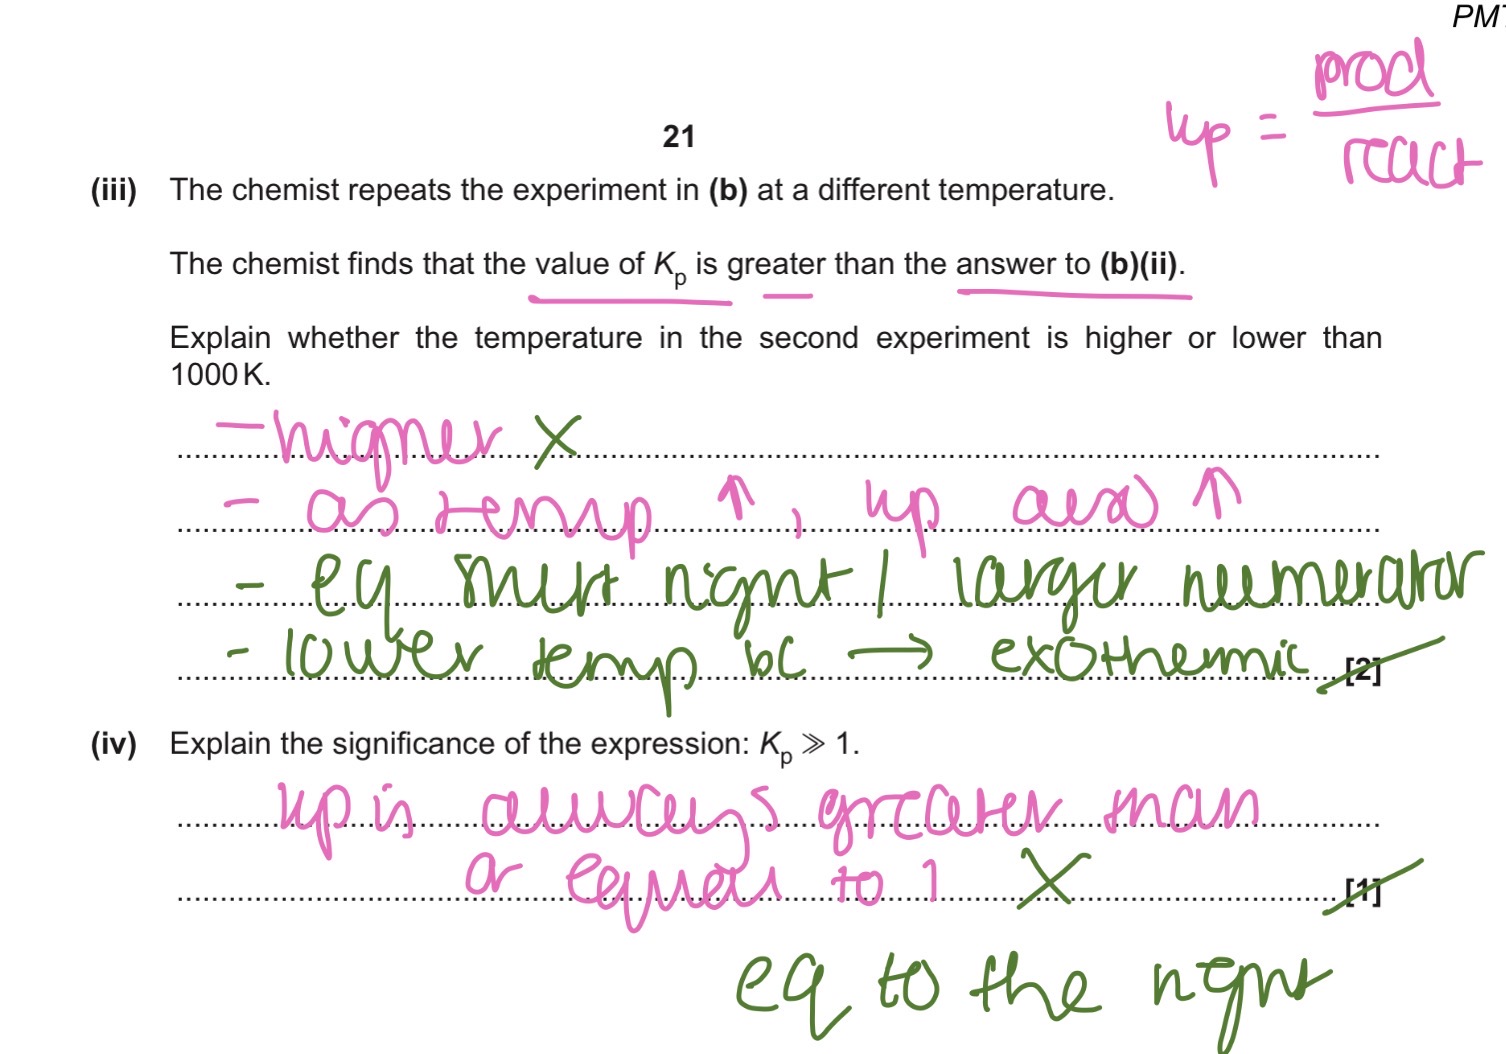 PMT
kp = prod
react
21
(iii) The chemist repeats the experiment in (b) at a different temperature.
The chemist finds that the value of Kp is greater than the answer to (b)(ii).
Explain whether the temperature in the second experiment is higher or lower than
1000 K.
- higher X
- as temp ↑, kp also ↑
- eq shift right / larger numerator
- lower temp bc → exothermic [2]
(iv) Explain the significance of the expression: Kp ≫ 1.
kp is always greater than
or equal to 1 X [1]
eq to the right